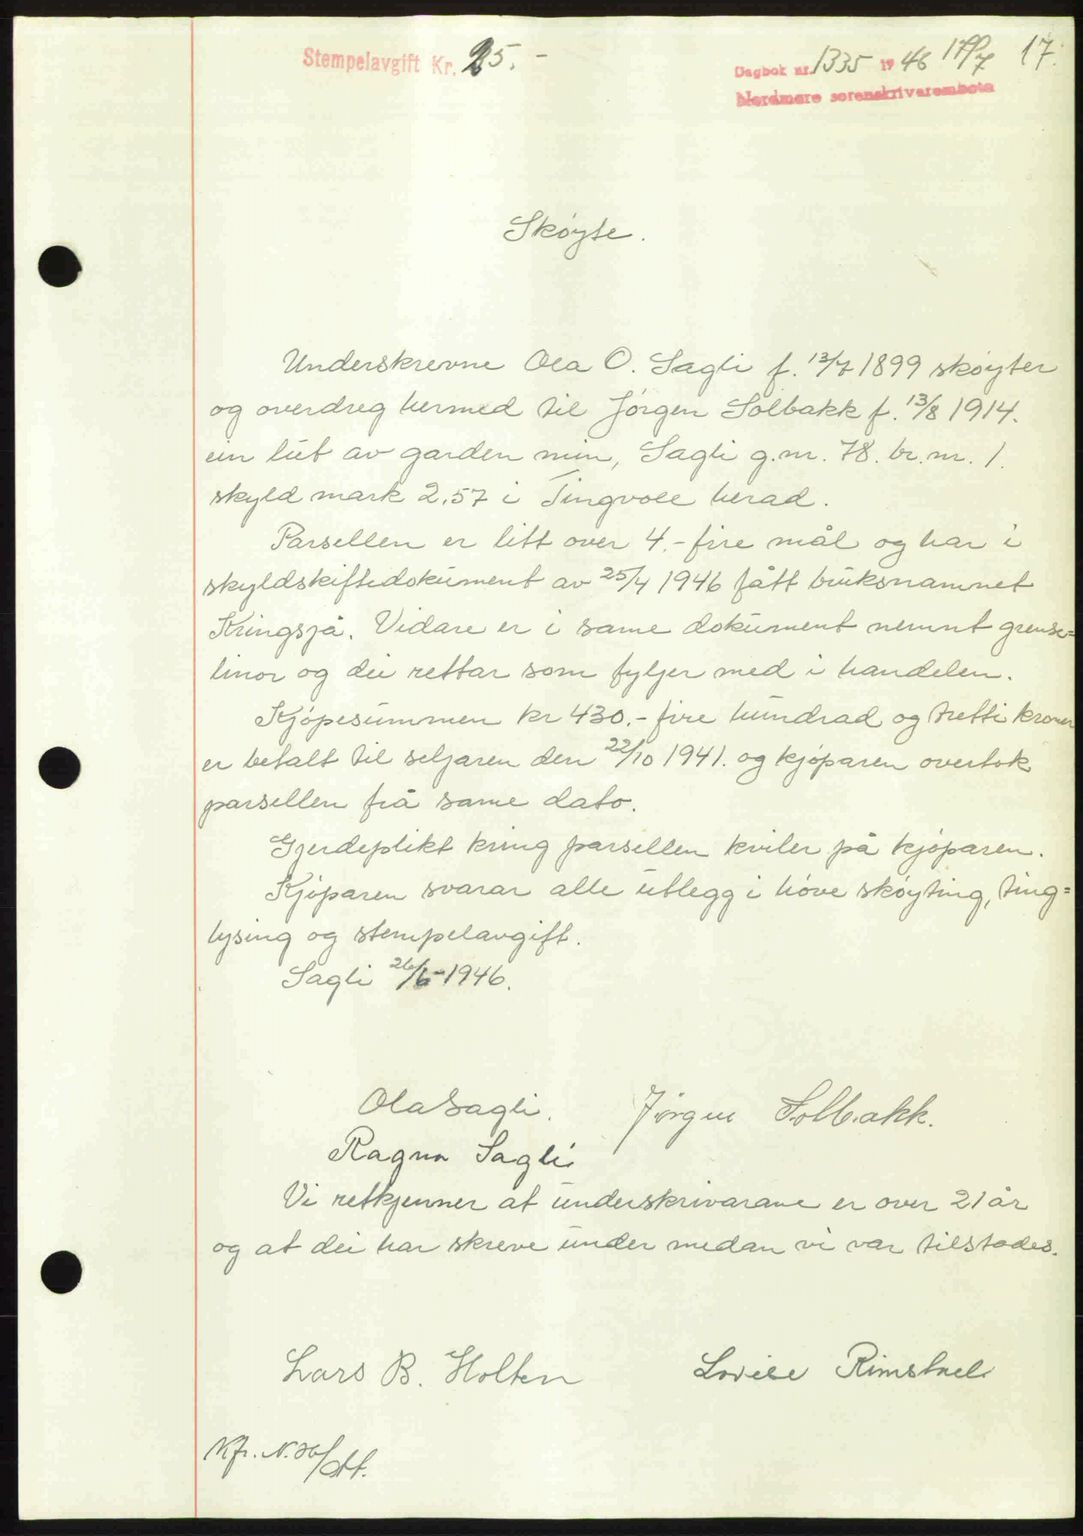 Stempelavgift Kr. 25.-
Dagbok nr. 1335 1946 17/7 17.
Nordmøre sorenskrivarembete
Skøyte.
Underskrevne Ola O. Sagli f. 13/7 1899 skøyter
og overdreg hermed til Jørgen Solbakk f. 13/8 1914.
ein lut av garden min, Sagli g.nr. 78. br.nr. 1.
skyld mark 2.57 i Tingvoll herad.
Parsellen er litt over 4.- fire mål og har i
skyldskiftedokument av 25/4 1946 fått bruksnamnet
Kringsjå. Vidare er i same dokument nemnt grense=
linor og dei rettar som fyljer med i handelen.
Kjøpesummen kr 430.- fire hundrad og tretti kroner
er betalt til seljaren den 22/10 1941. og kjøparen overtok
parsellen frå same dato.
Gjerdeplikt kring parsellen kviler på kjøparen.
Kjøparen svarar alle utlegg i høve skøyting, ting=
lysing og stempelavgift.
Sagli 26/6-1946.
Ola Sagli. Jørgen Solbakk.
Ragna Sagli
Vi retkjenner at underskrivarane er over 21 år
og at dei har skreve under medan vi var tilstades.
Lars B. Holten Lovise Rimstad
Kfr. N.